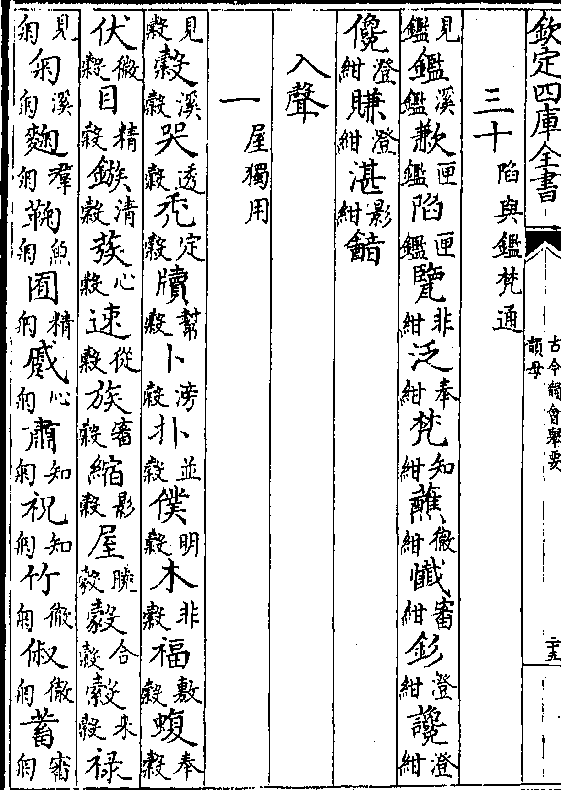 欽定四庫全書
古今韻會舉要
韻母
二十五
三十 陷與鑑梵通
見鑑鑑溪鑑歉匣鑑陷匣鑑覽非紺泛奉紺梵知紺蘸徹紺懺審紺釤澄紺讒澄紺
儳澄紺賺澄紺湛影紺韽
入聲
一 屋獨用
見穀穀溪穀哭透穀禿定穀牘幫穀卜滂穀扑並穀僕明穀木非穀福敷穀蝮奉穀
伏微穀目精穀鏃清穀蔟心穀速從穀族審穀縮影穀屋曉穀嗀合穀縠來穀祿
見匊匊溪匊麴羣匊鞠魚匊囿精匊慼心匊肅知匊祝知匊竹徹匊俶徹匊蓄審匊